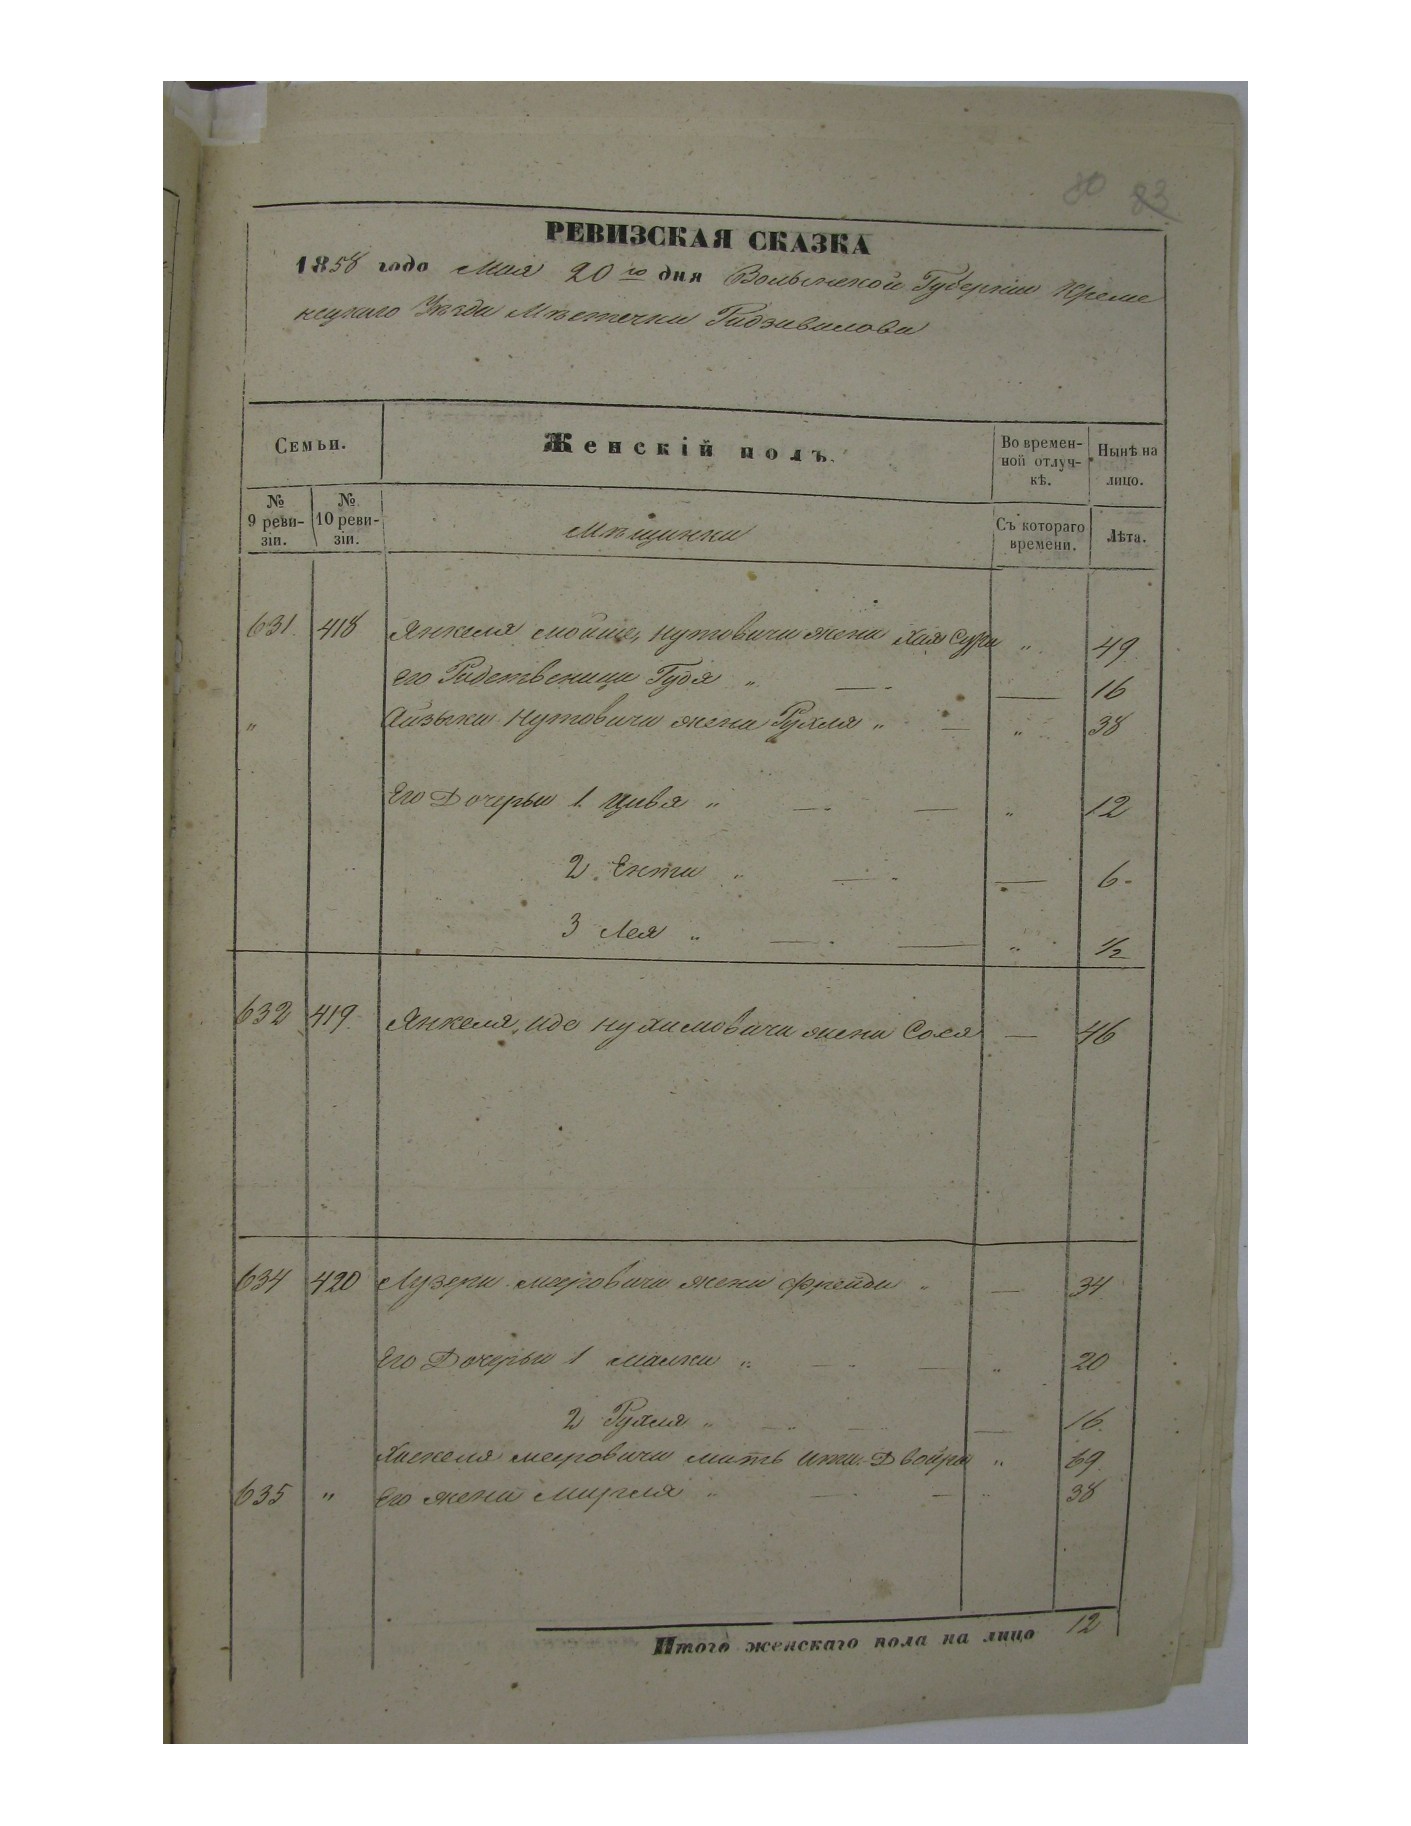 80 83
РЕВИЗСКАЯ СКАЗКА
1858 года Мая 20го дня Волынской Губернии Креме
нецкаго Уезда Местечка Радзивилова
Семьи.
Женскій полъ.
Во времен-
ной отлуч-
кѣ.
Нынѣ на
лицо.
№
9 реви-
зіи.
№
10 реви-
зіи.
Мѣщанки
Съ котораго
времени.
Лѣта.
631 418 Янкеля Мойше, Нутовича жена Хая Сура " 49
его Родственица Гудя " — 16
" Айзыка Нутовича жена Рухля " — " 38
Его Дочерьи 1. Цивя " — — " 12
2. Ента " — — 6
3 Лея " — — " 1/2
632 419 Янкеля, Иде Нухимовича жена Сося — 46
634 420 Лузера Мееровича жена Фрейда " — 34
Его Дочерьи 1 Малка " — — " 20
2 Рухля " — — 16
Хаскеля Мееровича мать Двойра " 69
635 " Его жена Мирля " — — " 38
Итого женскаго пола на лицо 12